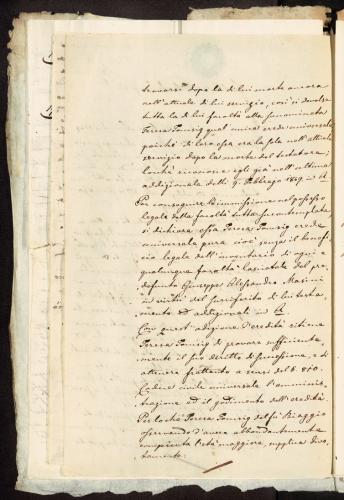 trovarsi dopo la di lui morte ancora
nell'attuale di lui servigio, così si devolse
tutta la di lui facoltà alla sunnominata
Teresa qual unica erede universale
poiché di loro essa era la sola nell'attuale
servizio dopo la morte del testatore;
locché riconosce egli già nell'ultima
addizionale delli 9. Febbrajo 1819. in A
Per conseguire l'immissione nel possesso
legale della facoltà tutta succontemplata
si dichiara essa Teresa erede
universale pura cioè senza il benefi-
cio legale dell'inventario di ogni e
qualunque facoltà lasciata del pre-
defunto Giuseppe Alessandro Masini
in virtù del surriferito di lui testa-
mento ed addizionali in A.
Con quest'adizione d'eredità ritiene
Teresa di provare sufficiente-
mente il suo diritto di successione, e di
ottenere frattanto a sensi del §. 810.
Codice civile universale l'amminis-
trazione ed il godimento dell'eredità.
Perlocché Teresa del fu Biaggio
osservando d'avere abbondantemente
compiuta l'età maggiore, supplica divo-
tamente: